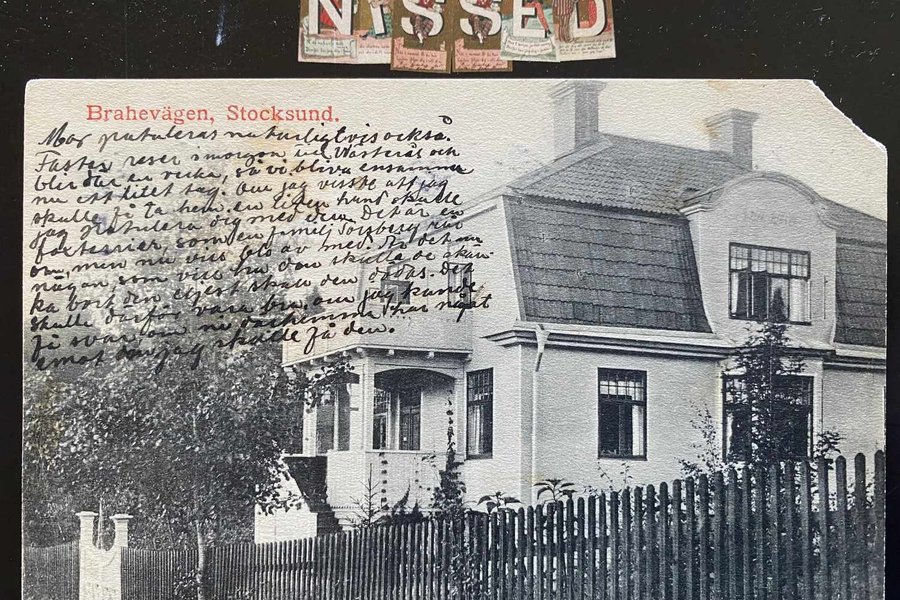 NISSED
Brahevägen, Stocksund.
Mor gratuleras naturligtvis också.
Faster reser i morgon till Västerås och
blir där en vecka, så vi bliva ensamma
nu ett litet tag. Om jag visste att jag
skulle få ta hem en liten hund skulle
jag gratulera dig med den. Det är en
foxterrier, som en familj
om, men nu vill bli av med. Är det nu
någon som vill ha den skulle de skän-
ka bort den eljest skall den dödas. Det
skulle därför vara bra om jag kunde
få svar om ni därhemma har något
emot om jag skulle få den.